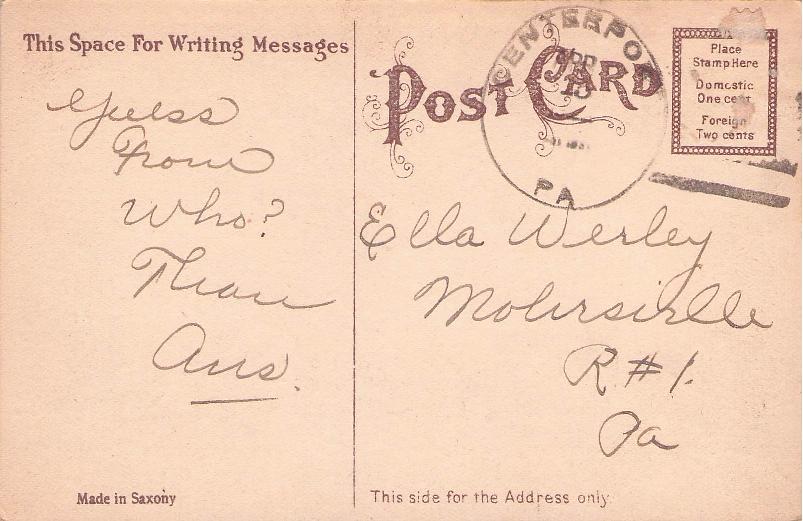 This Space For Writing Messages
POST CARD
CENTERPO
APR
10
PA
Place
Stamp Here
Domestic
One cent
Foreign
Two cents
Guess
From
Who?
Then
Ans.
Ella Werley
Mohrsville
R #1.
Pa
Made in Saxony
This side for the Address only.